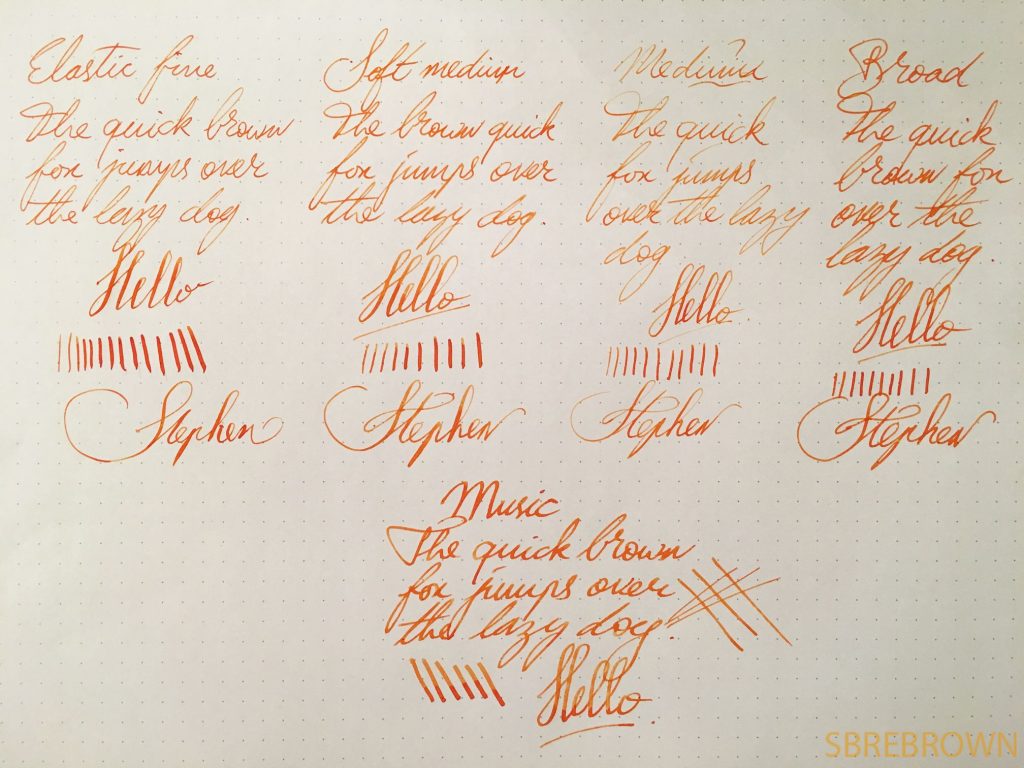 Elastic fine
The quick brown
fox jumps over
the lazy dog.
Hello
Stephen
Soft medium
The brown quick
fox jumps over
the lazy dog.
Hello
Stephen
Medium
The quick
fox jumps
over the lazy
dog
Hello.
Stephen
Broad
The quick
brown fox
over the
lazy dog.
Hello
Stephen
Music
The quick brown
fox jumps over
the lazy dog.
Hello.
SBREBROWN